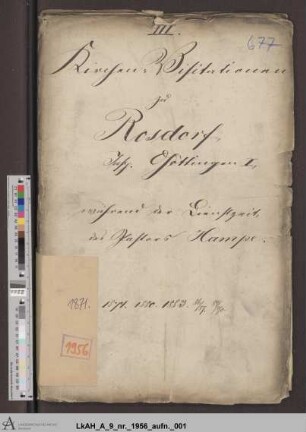 III.
677
Kirchen-Visitationen
zu
Rosdorf,
Insp. Göttingen I,
während der Dienstzeit
des Pastors Hampe.
1871. 1874. 1880. 1883.
1956
LkAH_A_9_nr._1956_aufn._001